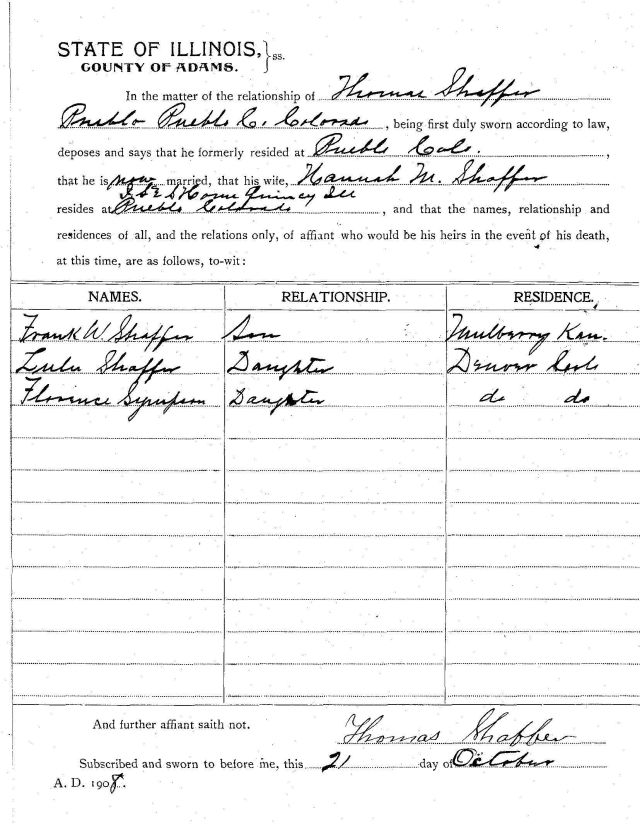 STATE OF ILLINOIS, } ss.
COUNTY OF ADAMS.
In the matter of the relationship of Thomas Shaffer
Pueblo Pueblo C. Colorado, being first duly sworn according to law,
deposes and says that he formerly resided at Pueblo Colo.,
that he is now married, that his wife, Hannah M. Shaffer
I S & S Home Quincy Ill
resides at Pueblo Colorado, and that the names, relationship and
residences of all, and the relations only, of affiant who would be his heirs in the event of his death,
at this time, are as follows, to-wit:
NAMES. RELATIONSHIP. RESIDENCE.
Frank W. Shaffer Son Mulberry Kan.
Lulu Shaffer Daughter Denver Colo
Florence Daughter do do
And further affiant saith not.
Thomas Shaffer
Subscribed and sworn to before me, this 21 day of October
A. D. 1908.